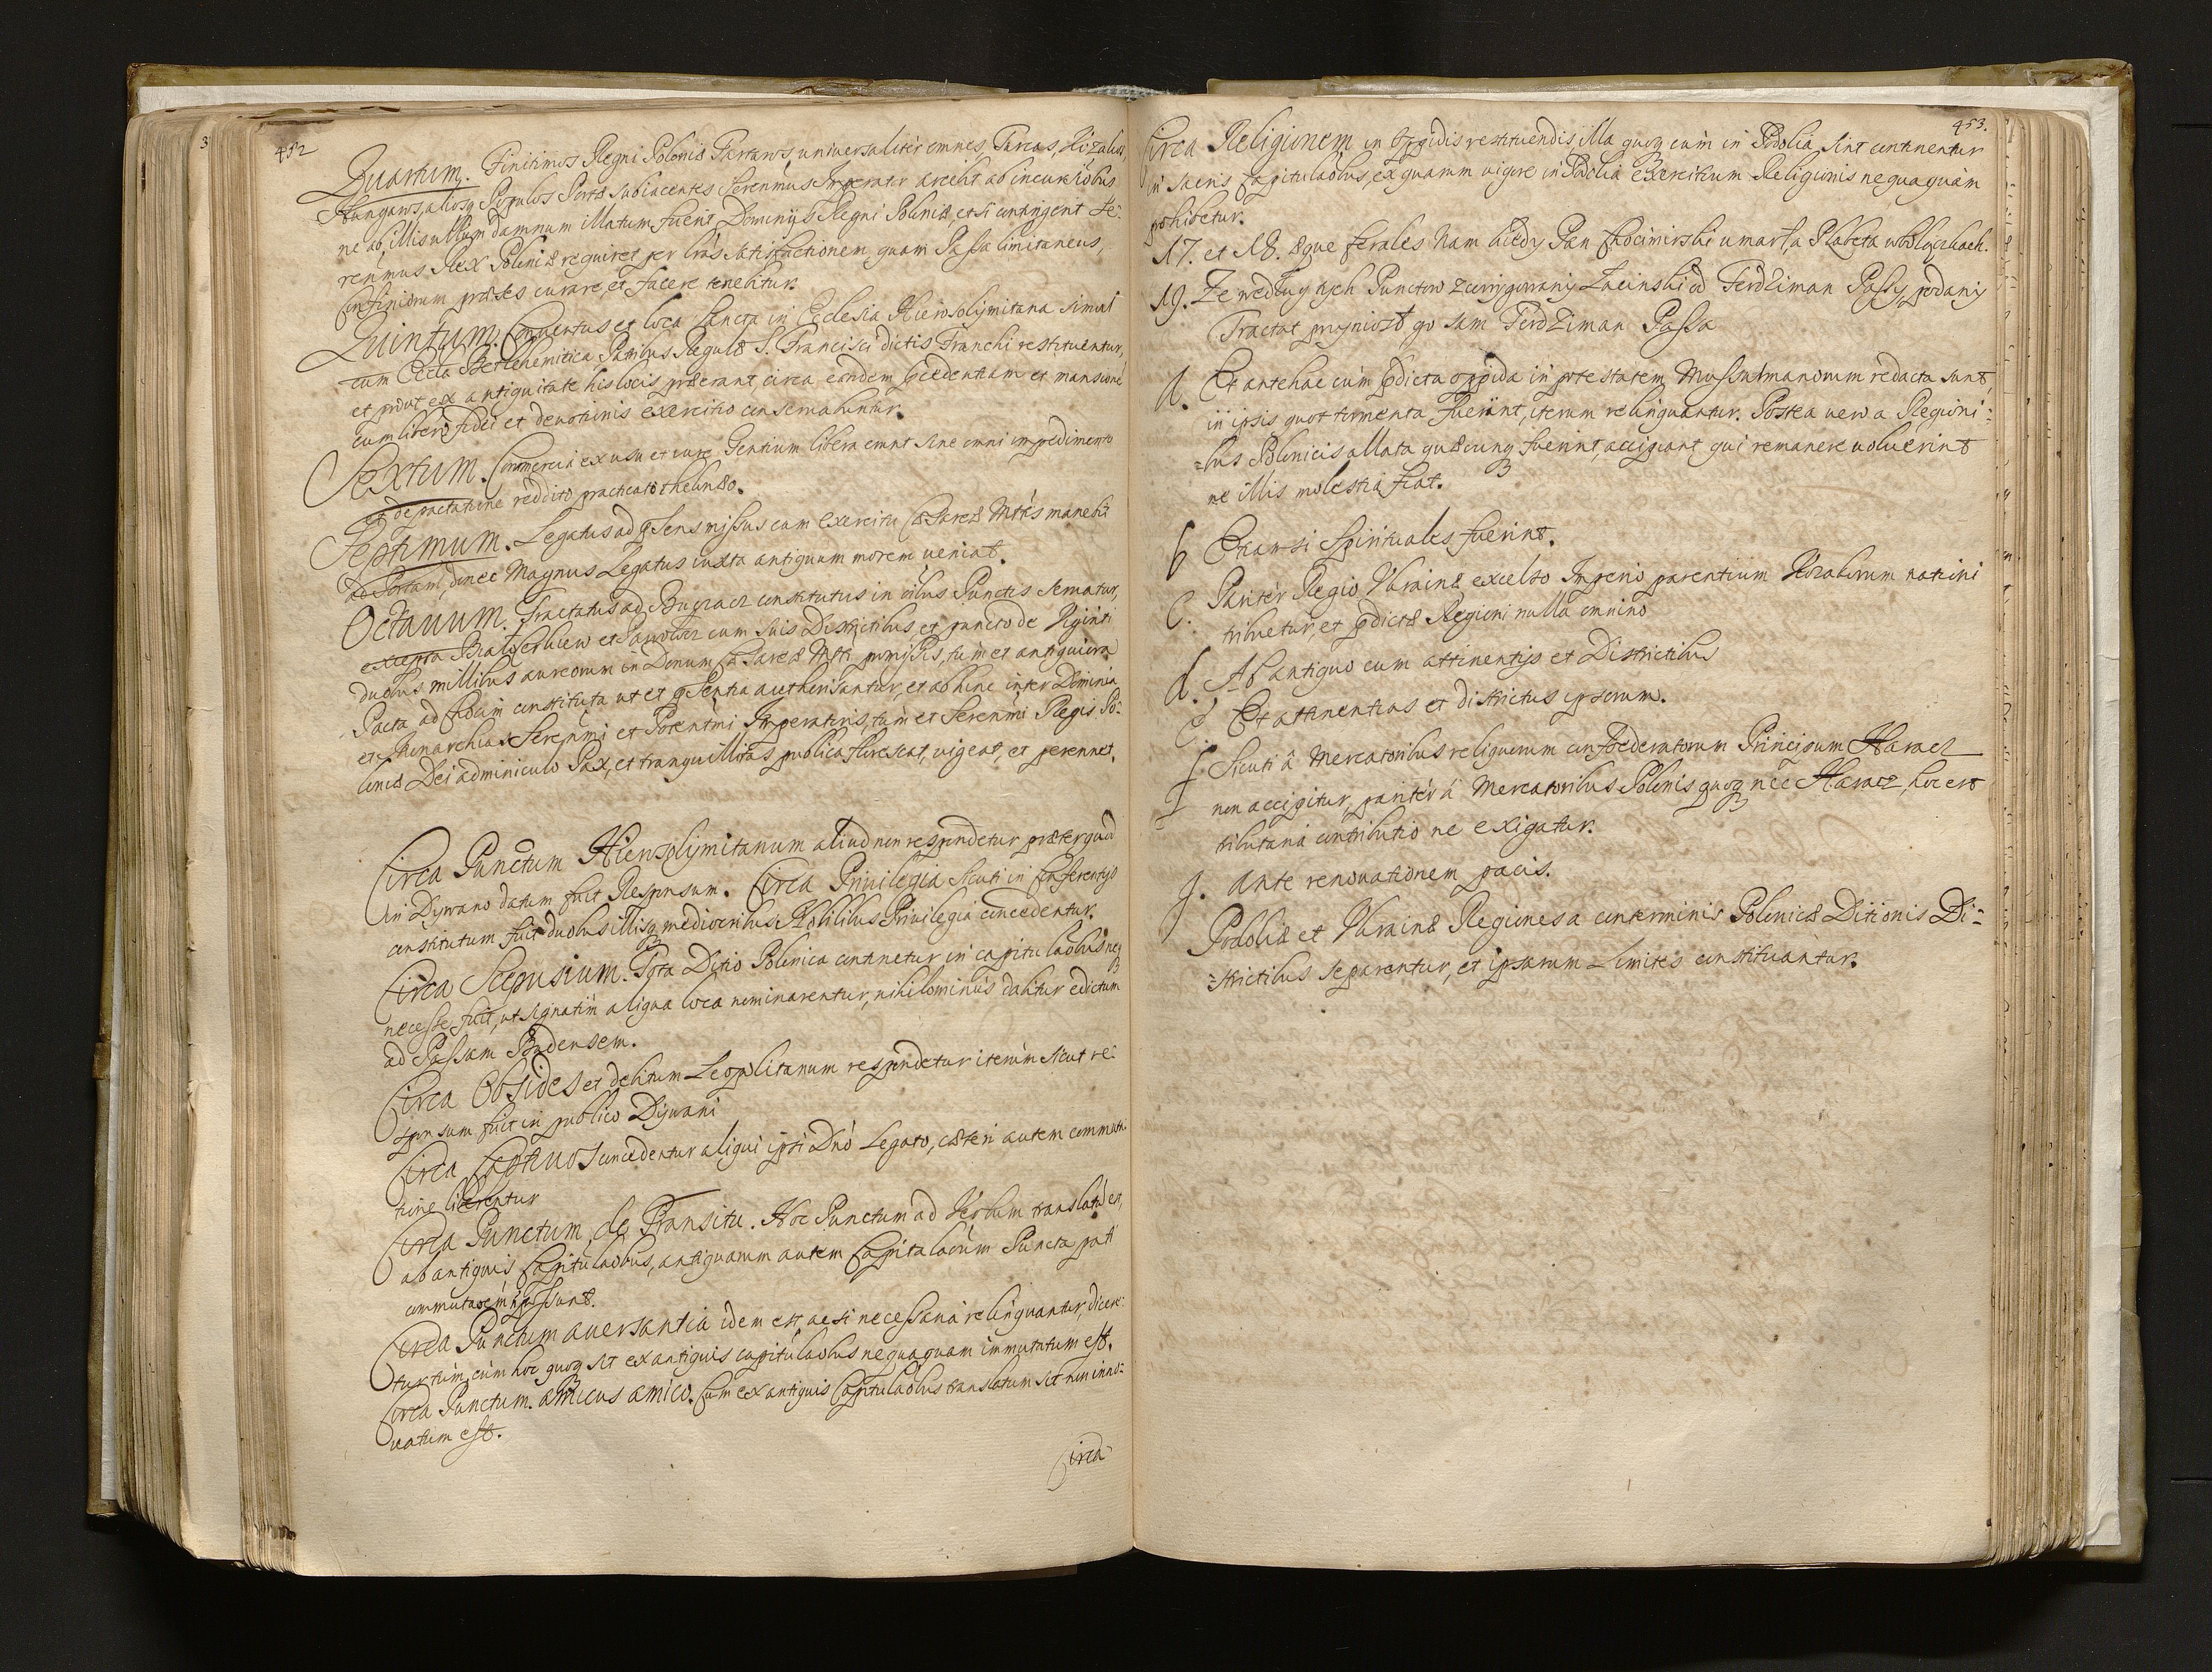 452
Quartum. Finitimos Regni Poloniæ Tartaros, universaliter omnes, Turcas, Kozakos,
Hungaros, aliosq Populos Portæ subiacentes Serenmus Imperator arcebit ab incursiobus
ne ab illis ullum damnum illatum fuerit Dominijs Regni Poloniæ, et si contingerit Se-
renmus Rex Poloniæ requiret per lras satisfactionem, quam Passa limitaneus,
Confiniorum præses curare, et facere tenebitur.
Quintum. Conventus et loca Sancta in Ecclesia Hierosolymitana simul
cum Eccla Betlehemitica Patribus Regulæ S. Francisci dictis Franchi restituentur,
et prout ex antiquitate his locis præerant, circa eandem credentiam et mansione
cum libero fidei et devotionis exercitio conservabuntur.
Sextum. Commercia ex usu et iure Gentium libera erunt sine omni impedimento
et depactatione reddito practicato theloneo.
Septimum. Legatus ad psens missus cum Exercitu Cæsareæ Mttis manebit
ad Portam, donec Magnus Legatus iuxta antiquum morem veniat.
Octauum. Tractatus ad Buczacz constitutus in oibus Punctis servatur,
excepta Białocerkiew et Pawołocz cum suis Districtibus, et puncto de Viginti
duobus millibus aureorum in Donum Cæsareæ Mtti promissis, tum et antiquiora
Pacta ad Chocim constituta ut et psentia authorisantur, et abhinc inter Dominia
et Monarchias Serenmi et Potentmi Imperatoris, tum et Serenmi Regis Po-
loniæ Dei adminiculo Pax, et tranquillitas publica florescat, vigeat, et perennet.
Circa Punctum Hierosolymitanum aliud non respondetur præterquod
in Dywano datum fuit Responsum. Circa Privilegia sicuti in Conferentijs
constitutum fuit duobus illisq mediocribus Nobilibus Privilegia concedentur.
Circa Scepusium. Tota Ditio Polonica continetur in capitulaobus neq
necesse fuit, ut signatim aliqua loca nominarentur, nihilominus dabitur edictum
ad Passam Budensem.
Circa Obsides et debitum Leopolitanum respondetur iterum sicut re-
sponsum fuit in publico Dywani
Circa Captiuos concedentur aliqui ipsi Dno Legato, cæteri autem commuta
tione liberentur
Circa Punctum de Transitu. Hoc Punctum ad Verbum translatu est,
ab antiquis Capitulaobus, antiquarum autem Capitulaonum Puncta pati
commutaoem possunt.
Circa Punctum auersantia idem est, ac si necessaria relinquantur, dicere-
tur tum, cum hoc quoq sit ex antiquis capitulaobus nequaquam immutatum est.
Circa Punctum. amicus amico. Cum ex antiquis Capitulaobus translatum sit non inno-
vatum est.
Circa
453.
Circa Religionem in Oppidis restituendis illa quoq cum in Podolia sint continentur
in sacris Capitulaobus, ex quarum vigore in Podolia exercitium Religionis nequaquam
prohibetur.
17. et 18. æque ferales nam kiedy Pan Chocimirski umarł, a Plabeta w
19. Ze według tych Punctow od Ferdziman Passy podany
Tractat przyniosł go sam Terdziman Passa
a. Et antehac cum pdicta oppida in potestatem Mussulmanorum redacta sunt,
in ipsis quot tormenta fuerint, iterum relinquantur. Postea vero a Regioni-
=bus Polonicis allata quæcunq fuerint, accipiant qui remanere voluerint
ne illis molestia fiat.
b Etiamsi Spirituales fuerint.
c. Pariter Regio Ukrainæ excelso Imperio parentium Kozakorum nationi
tribuetur, et pdictæ Regioni nulla omnino
d. Ab antiquo cum attinentijs et Districtibus
e. Et attinentias et districtus ipsorum.
f Sicuti â Mercatoribus reliquorum confoederatorum Principum Haracz
non accipitur, pariter á Mercatoribus Polonis quoq nec Haracz, hoc est
tributaria contributio ne exigatur.
g. Ante renovationem pacis.
Podoliæ et Ukrainæ Regiones a conterminis Polonicæ Ditionis Di-
=strictibus separentur, et ipsarum Limites constituantur.